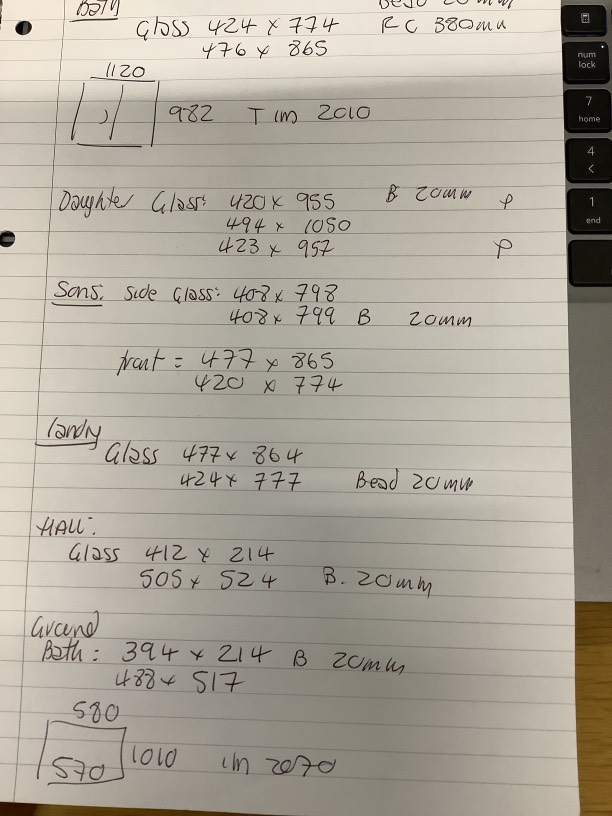 Bath
Bead 20mm
Glass 424 x 774 RC 380mm
476 x 865
1120
982 T 1m 2010
Daughter Glass: 420 x 955 B 20mm P
494 x 1050
423 x 957 P
Sons. Side Glass: 408 x 798
408 x 799 B 20mm
front = 477 x 865
420 x 774
Landy
Glass 477 x 864
424 x 777 Bead 20mm
HALL:
Glass 412 x 214
505 x 524 B. 20mm
Ground
Bath: 394 x 214 B 20mm
488 x 517
580
570 1010 1m 2070
num
lock
7
home
4
<
1
end